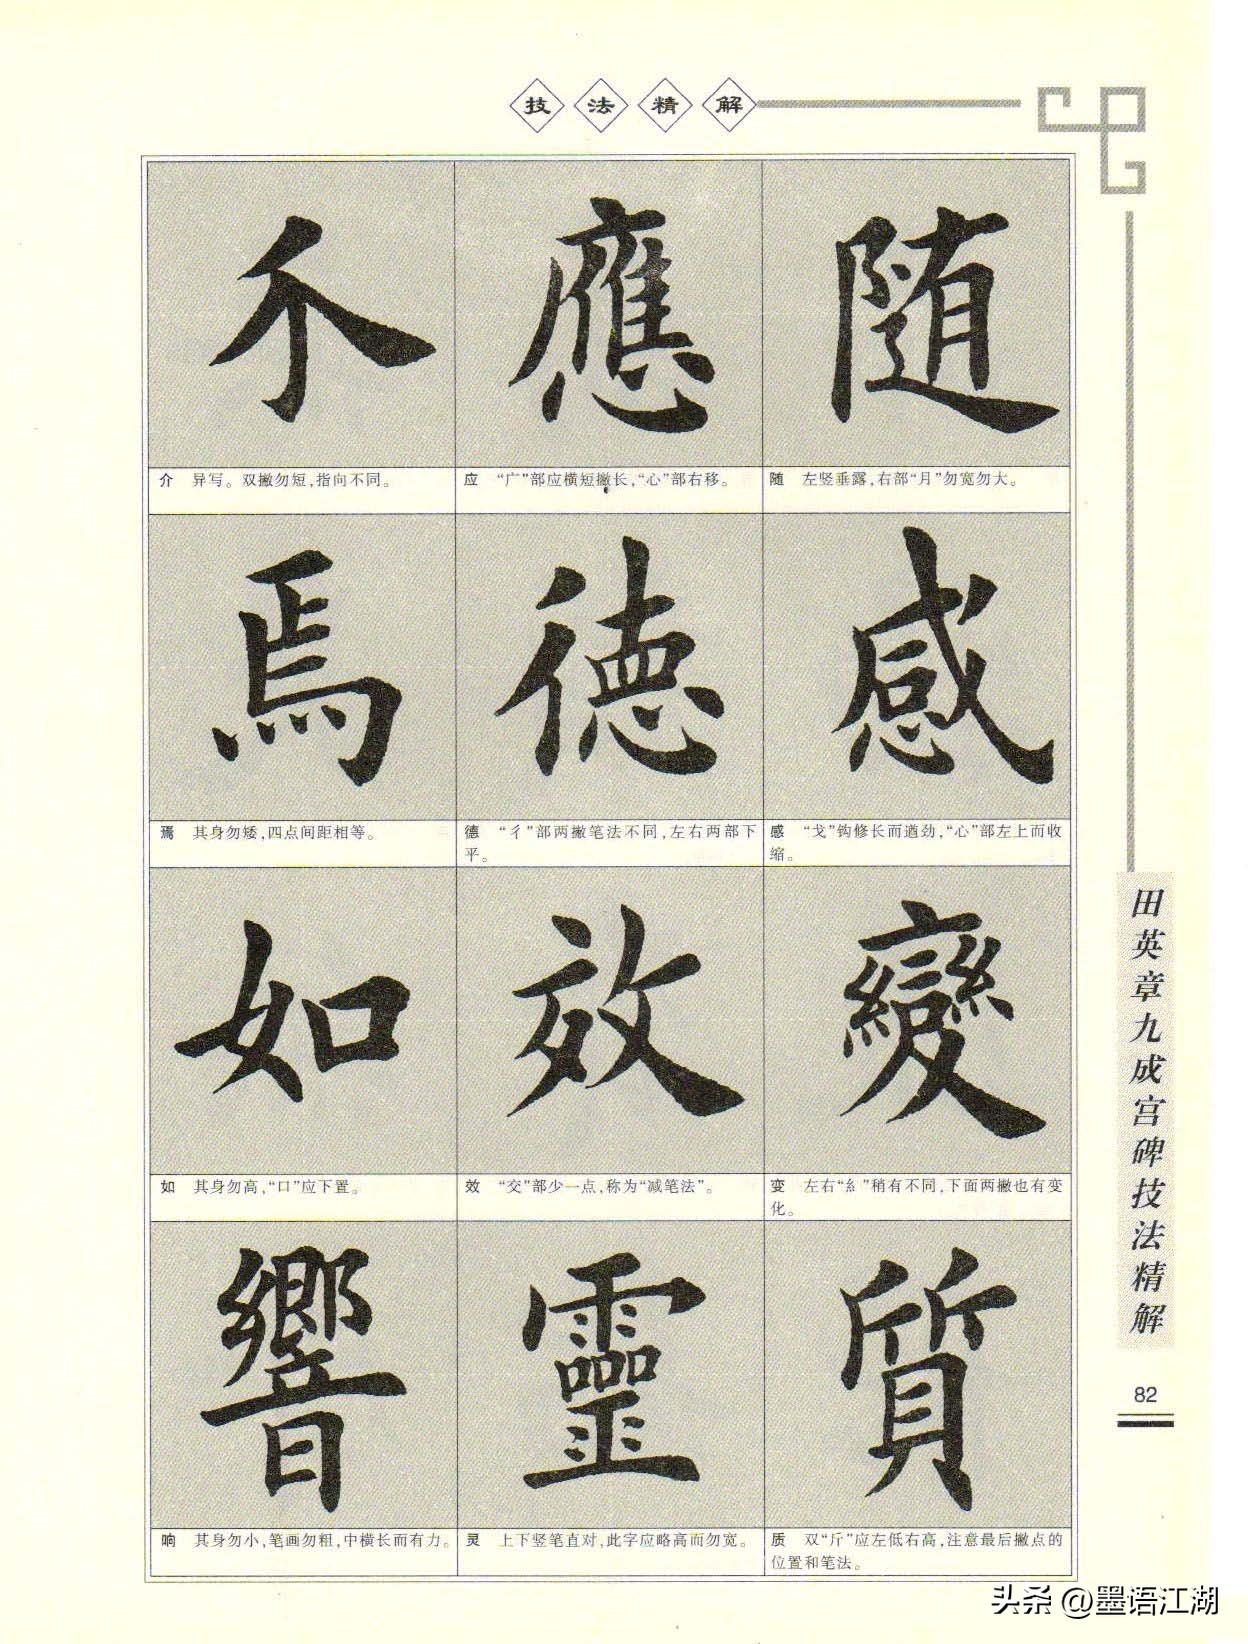 技法精解
不 應 随
介 异写。双撇勿短，指向不同。
应 “广”部应横短撇长，“心”部右移。
随 左竖垂露，右部“月”勿宽勿大。
焉 德 感
焉 其身勿矮，四点间距相等。
德 “彳”部两撇笔法不同，左右两部下
平。
感 “戈”钩修长而遒劲，“心”部左上而收
缩。
如 效 變
如 其身勿高，“口”应下置。
效 “交”部少一点，称为“减笔法”。
变 左右“糹”稍有不同，下面两撇也有变
化。
響 靈 質
响 其身勿小，笔画勿粗，中横长而有力。
灵 上下竖笔直对，此字应略高而勿宽。
质 双“斤”应左低右高，注意最后撇点的
位置和笔法。
田英章九成宫碑技法精解
82
头条 @墨语江湖